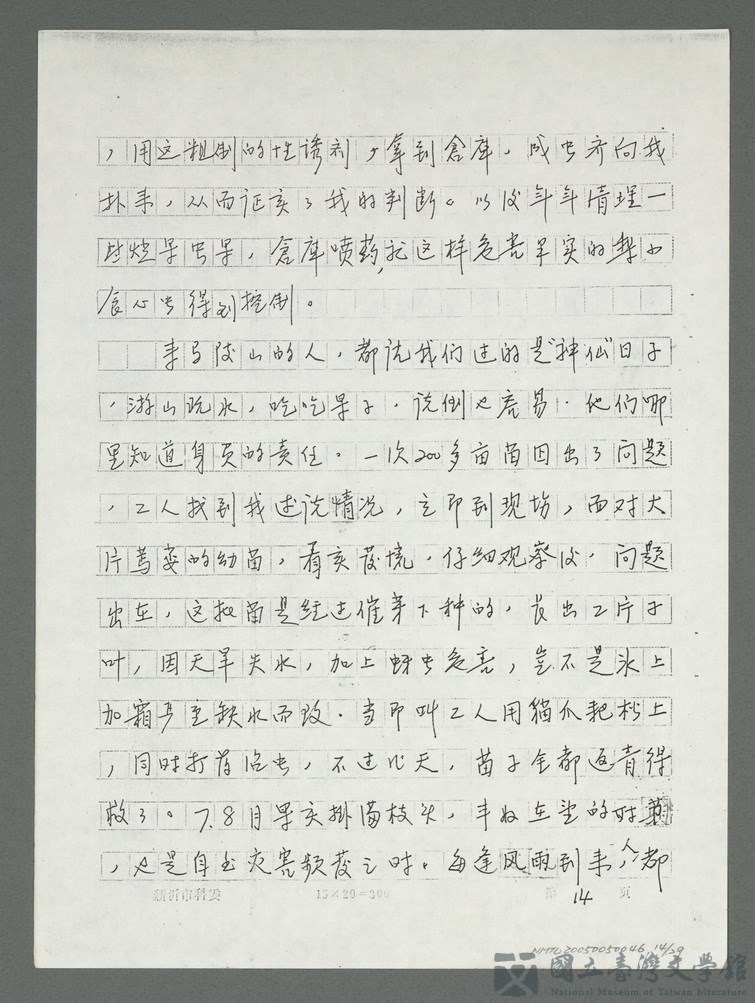 ，用这粗制的性诱剂，拿到倉庫，成虫齐向我
扑来，从而证实了我的判断。以后年年清理一
些烂果虫果，倉庫喷药，把这样危害果实的梨小
食心虫得到控制。
来马陵山的人，都说我们过的是"神仙"日子
，游山玩水，吃吃果子，说倒也容易，他们哪
里知道身负的责任。一次200多亩苗田出了问题
，工人找到我述说情况，立即到现场，面对大
片萎的幼苗，看实坡境，仔细观察后，问题
出在，这批苗是经过催芽下种的，长出2片子
叶，因天旱失水，加上蚜虫危害，岂不是氷上
加霜，至缺水而致。当即叫工人用貓爪耙松土
，同时打药治虫，不过几天，苗子全都返青得
救了。7.8月果实掛满枝头，丰收在望的时
，也是自然灾害频發之时。每逢风雨到来，人都
新沂市科委 15×20=300 第 14 页
NMTL20050050046 14/29
國立臺灣文學館
National Museum of Taiwan Literature